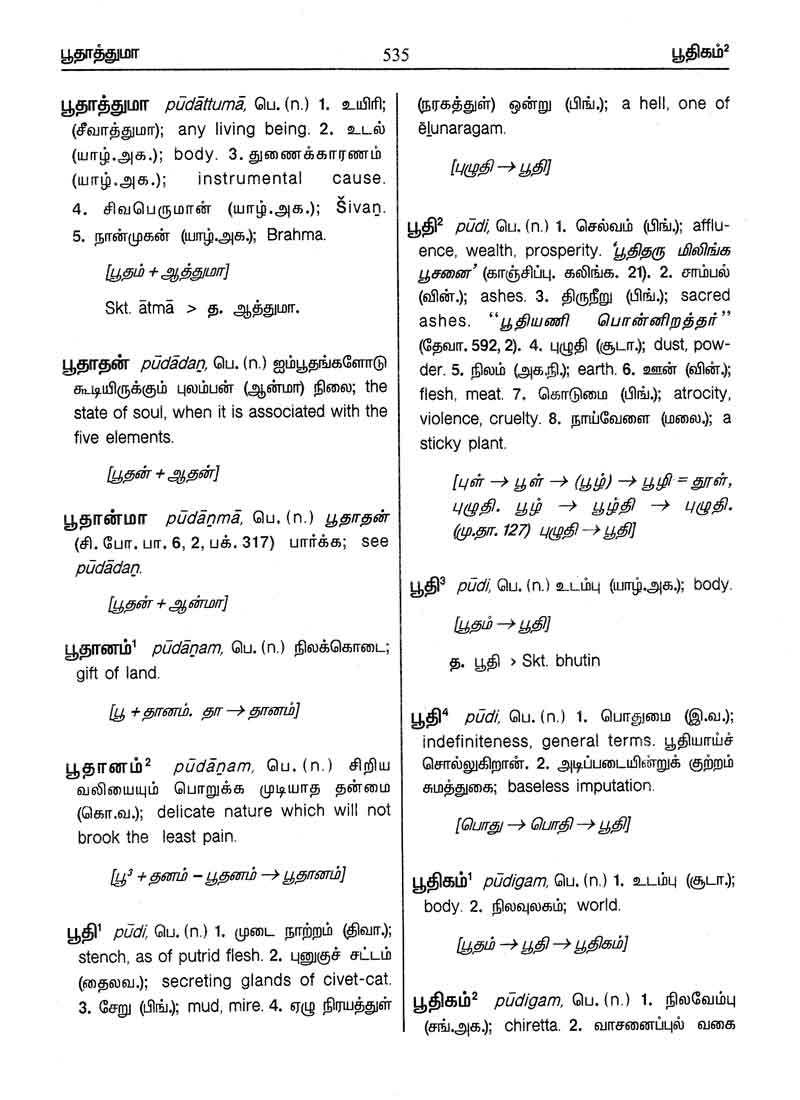 பூதாத்துமா
535
பூதிகம்²
பூதாத்துமா pūdāttumā, பெ. (n.) 1. உயிரி;
(சீவாத்துமா); any living being. 2. உடல்
(யாழ்.அக.); body. 3. துணைக்காரணம்
(யாழ்.அக.); instrumental cause.
4. சிவபெருமான் (யாழ்.அக.); Šivaṉ.
5. நான்முகன் (யாழ்.அக.); Brahma.
[பூதம் + ஆத்துமா]
Skt. ātmā > த. ஆத்துமா.
பூதாதன் pūdādaṉ, பெ. (n.) ஐம்பூதங்களோடு
கூடியிருக்கும் புலம்பன் (ஆன்மா) நிலை; the
state of soul, when it is associated with the
five elements.
[பூதன் + ஆதன்]
பூதான்மா pūdāṉmā, பெ. (n.) பூதாதன்
(சி. போ. பா. 6, 2, பக். 317) பார்க்க; see
pūdādaṉ.
[பூதன் + ஆன்மா]
பூதானம்¹ pūdāṉam, பெ. (n.) நிலக்கொடை;
gift of land.
[பூ + தானம். தா → தானம்]
பூதானம்² pūdāṉam, பெ. (n.) சிறிய
வலியையும் பொறுக்க முடியாத தன்மை
(கொ.வ.); delicate nature which will not
brook the least pain.
[பூ³ + தனம் – பூதனம் → பூதானம்]
பூதி¹ pūdi, பெ. (n.) 1. முடை நாற்றம் (திவா.);
stench, as of putrid flesh. 2. புனுகுச் சட்டம்
(தைலவ.); secreting glands of civet-cat.
3. சேறு (பிங்.); mud, mire. 4. ஏழு நிரயத்துள்
(நரகத்துள்) ஒன்று (பிங்.); a hell, one of
ēḻunaragam.
[புழுதி → பூதி]
பூதி² pūdi, பெ. (n.) 1. செல்வம் (பிங்.); afflu-
ence, wealth, prosperity. 'பூதிதரு மிலிங்க
பூசனை' (காஞ்சிப்பு. கலிங்க. 21). 2. சாம்பல்
(வின்.); ashes. 3. திருநீறு (பிங்.); sacred
ashes. “பூதியணி பொன்னிறத்தர்”
(தேவா. 592, 2). 4. புழுதி (சூடா.); dust, pow-
der. 5. நிலம் (அக.நி.); earth. 6. ஊன் (வின்.);
flesh, meat. 7. கொடுமை (பிங்.); atrocity,
violence, cruelty. 8. நாய்வேளை (மலை.); a
sticky plant.
[புள் → பூள் → (பூழ்) → பூழி = தூள்,
புழுதி. பூழ் → பூழ்தி → புழுதி.
(மு.தா. 127) புழுதி → பூதி]
பூதி³ pūdi, பெ. (n.) உடம்பு (யாழ்.அக.); body.
[பூதம் → பூதி]
த. பூதி > Skt. bhutin
பூதி⁴ pūdi, பெ. (n.) 1. பொதுமை (இ.வ.);
indefiniteness, general terms. பூதியாய்ச்
சொல்லுகிறான். 2. அடிப்படையின்றுக் குற்றம்
சுமத்துகை; baseless imputation.
[பொது → பொதி → பூதி]
பூதிகம்¹ pūdigam, பெ. (n.) 1. உடம்பு (சூடா.);
body. 2. நிலவுலகம்; world.
[பூதம் → பூதி → பூதிகம்]
பூதிகம்² pūdigam, பெ. (n.) 1. நிலவேம்பு
(சங்.அக.); chiretta. 2. வாசனைப்புல் வகை